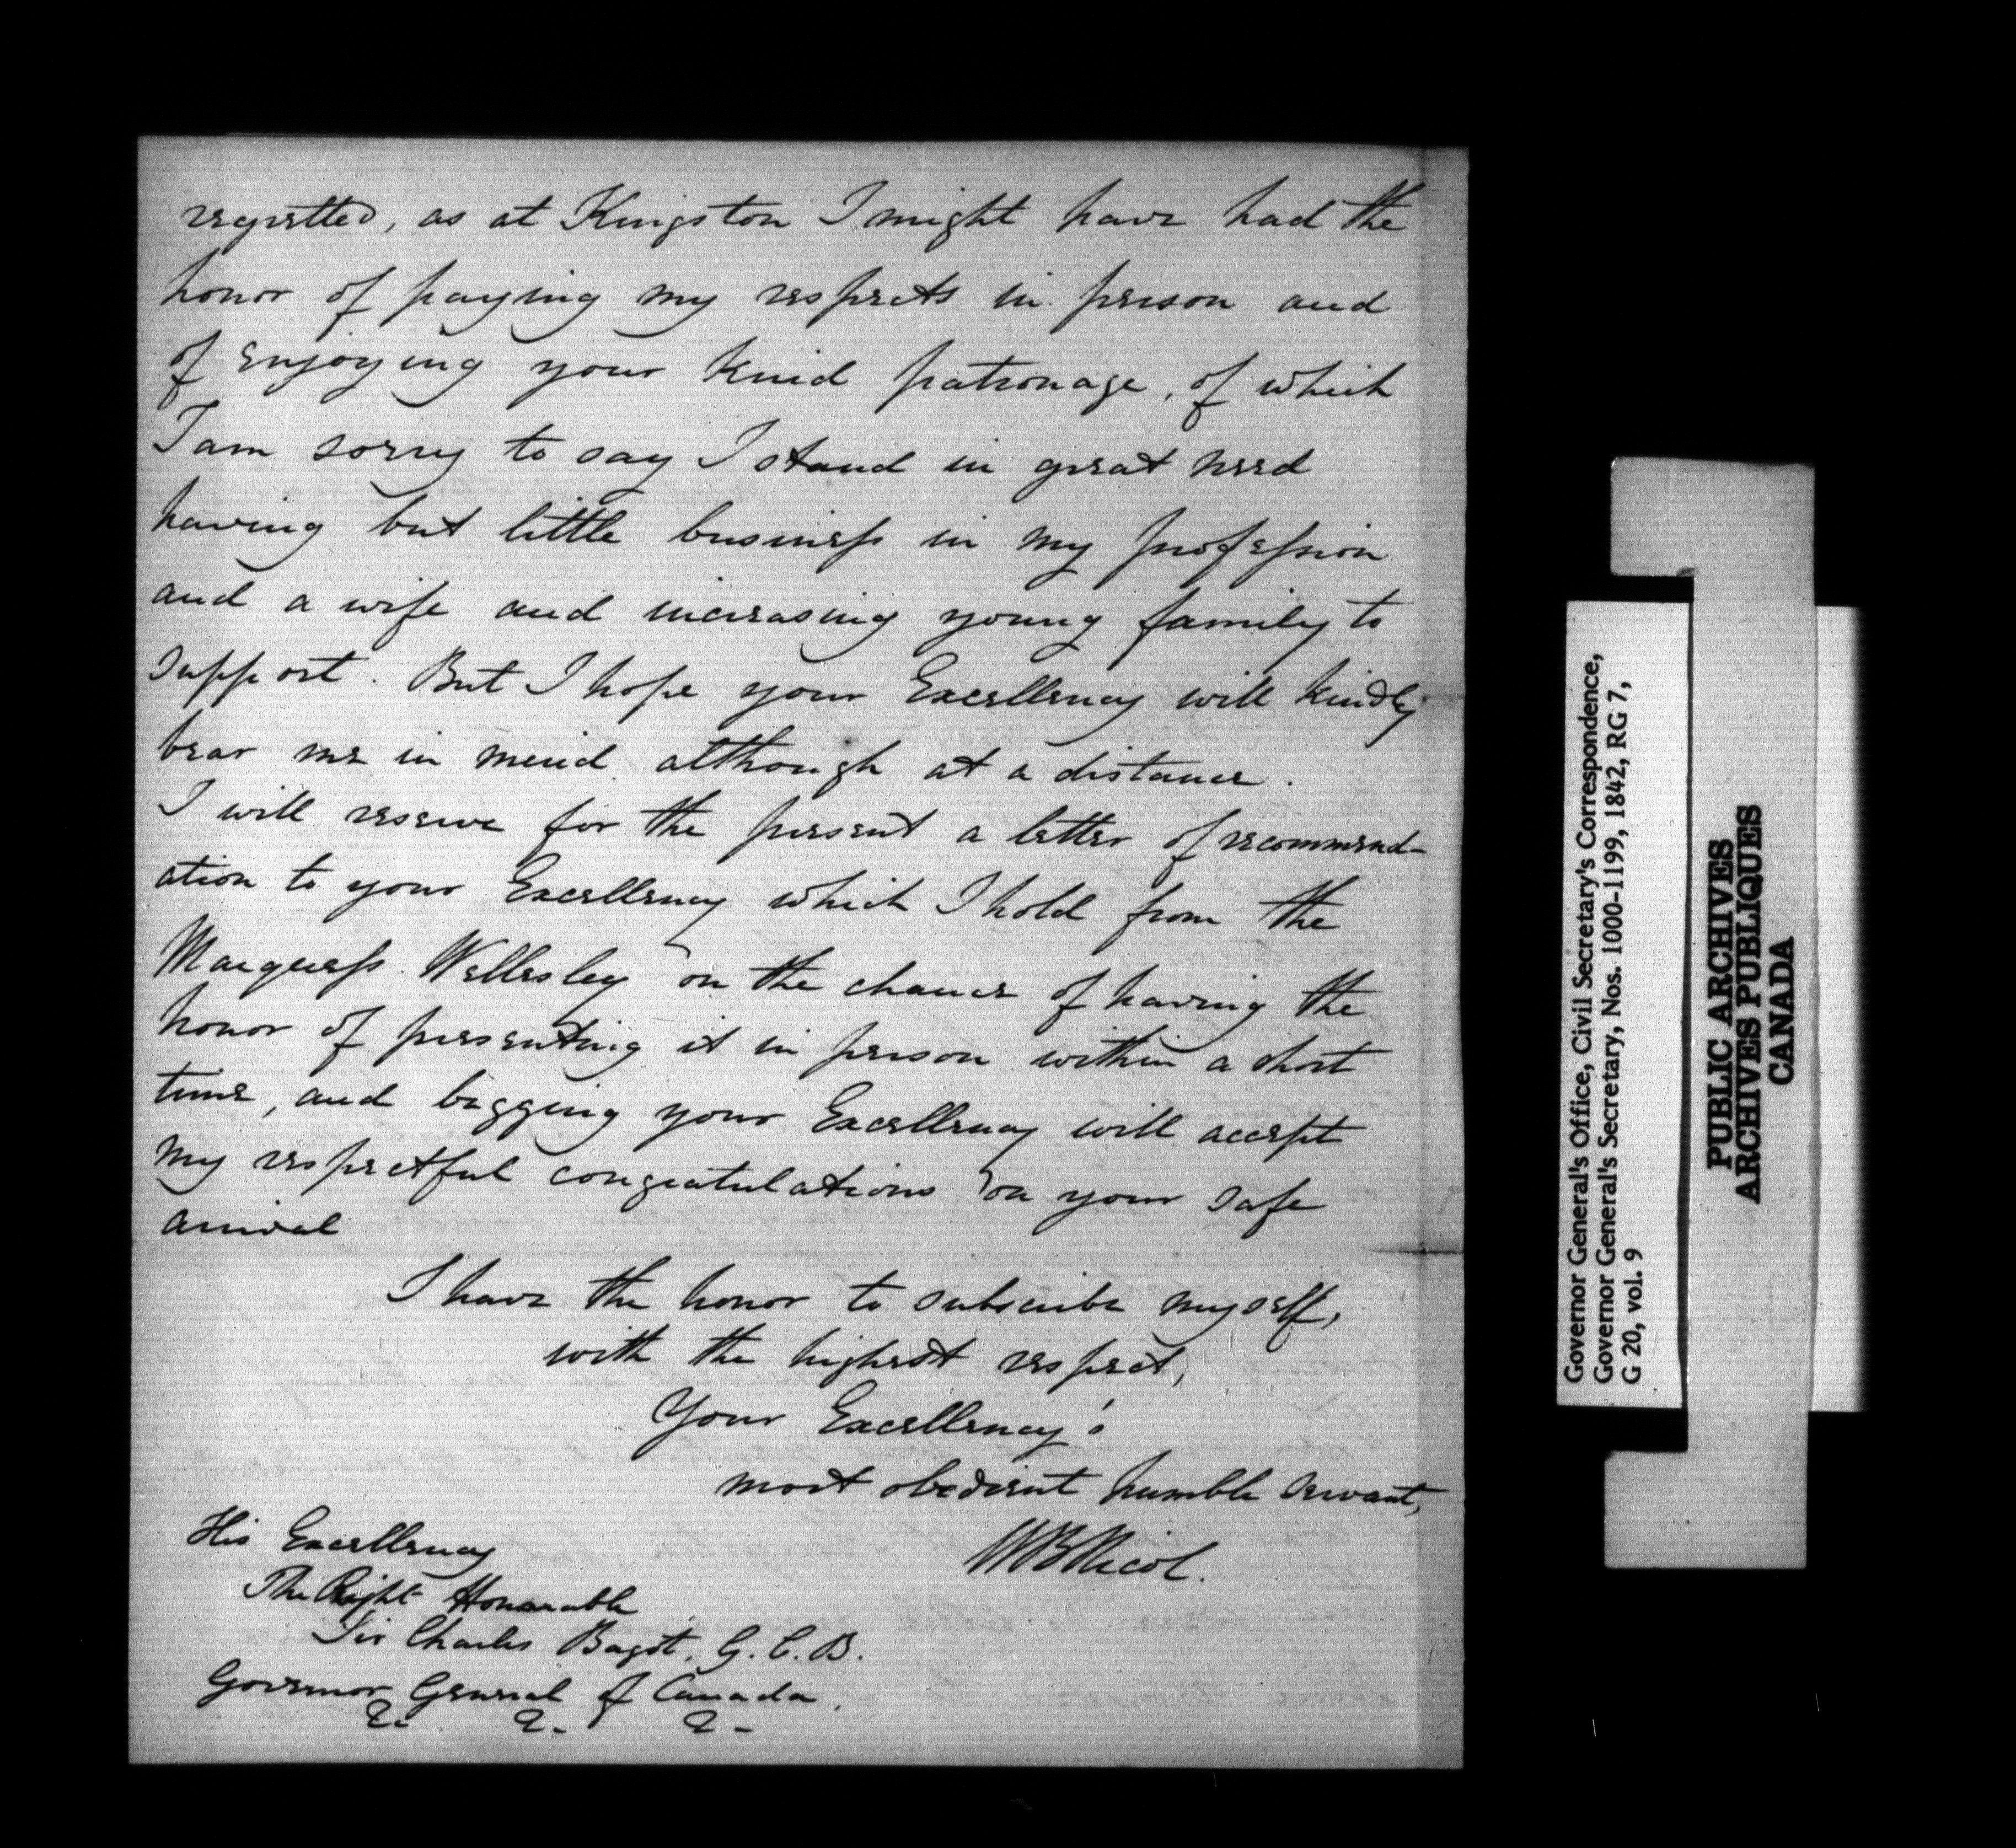 regretted, as at Kingston I might have had the
honor of paying my respects in person and
of enjoying your kind patronage, of which
I am sorry to say I stand in great need
having but little business in my profession
and a wife and increasing young family to
support. But I hope your Excellency will kindly
bear me in mind although at a distance.
I will reserve for the present a letter of recommend-
ation to your Excellency which I hold from the
Marquess Wellesley on the chance of having the
honor of presenting it in person within a short
time, and begging your Excellency will accept
my respectful congratulations on your safe
arrival
I have the honor to subscribe myself,
with the highest respect,
Your Excellency's
most obedient humble servant,
WB Nicol.
His Excellency
The Right Honorable
Sir Charles Bagot, G.C.B.
Governor General of Canada.
&c &c &c
Governor General's Office, Civil Secretary's Correspondence,
Governor General's Secretary, Nos. 1000-1199, 1842, RG 7,
G 20, vol. 9
PUBLIC ARCHIVES
ARCHIVES PUBLIQUES
CANADA